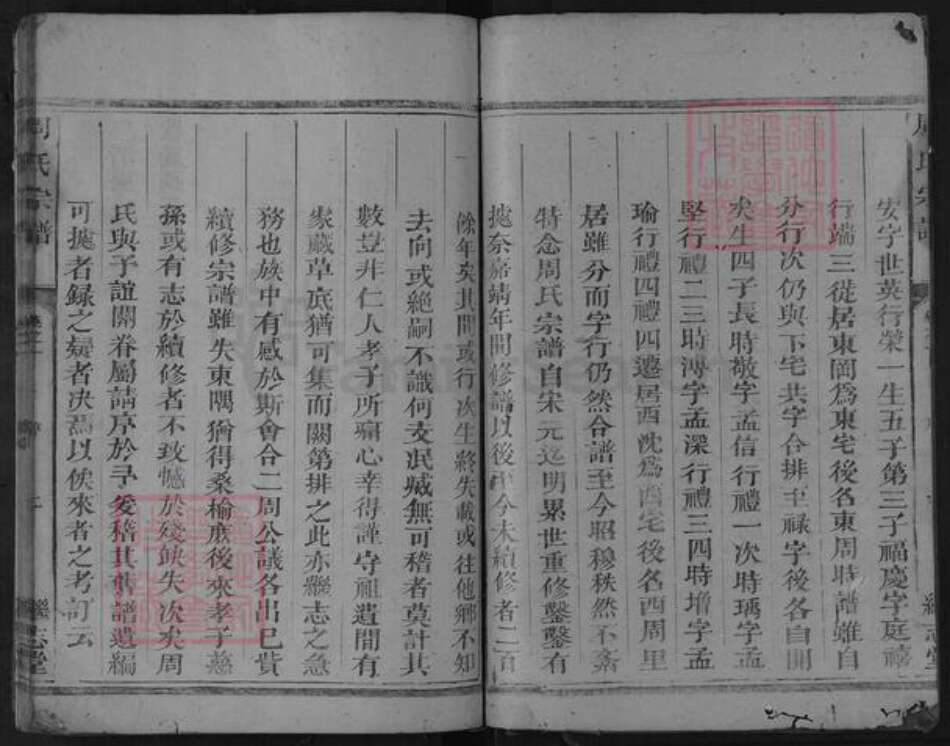 安字世英行榮一生五子第三子福慶字庭禧
行端三從居東岡爲東宅後名東周時譜雖自
分行次仍與下宅共字合排至祿字後各自開
矣生四子長時敬字孟信行禮一次時瑀字孟
堅行禮二三時溥字孟深行禮三四時增字孟
瑜行禮四禮四遷居西沈爲西宅後名西周里
居雖分而字行仍然合譜至今昭穆秩然不紊
特念周氏宗譜自宋元迄明累世重修鑿鑿有
據奈嘉靖年間修譜以後至今未續修者二百
餘年矣其間或行次生終失載或往他鄉不知
去向或絶嗣不識何支泯㓕無可稽者莫計其
數豈非仁人孝子所痛心幸得謹守祖遺間有
家藏草底猶可集而關第排之此亦繼志之急
務也族中有感於斯會合二周公議各出己貲
續修宗譜雖失東隅猶得桑榆庶後來孝子慈
孫或有志於續修者不致憾於殘缺失次矣周
氏與予誼關眷屬請序於予爰稽其舊譜遺編
可據者録之疑者决焉以俟來者之考訂云
周氏宗譜
繼志堂